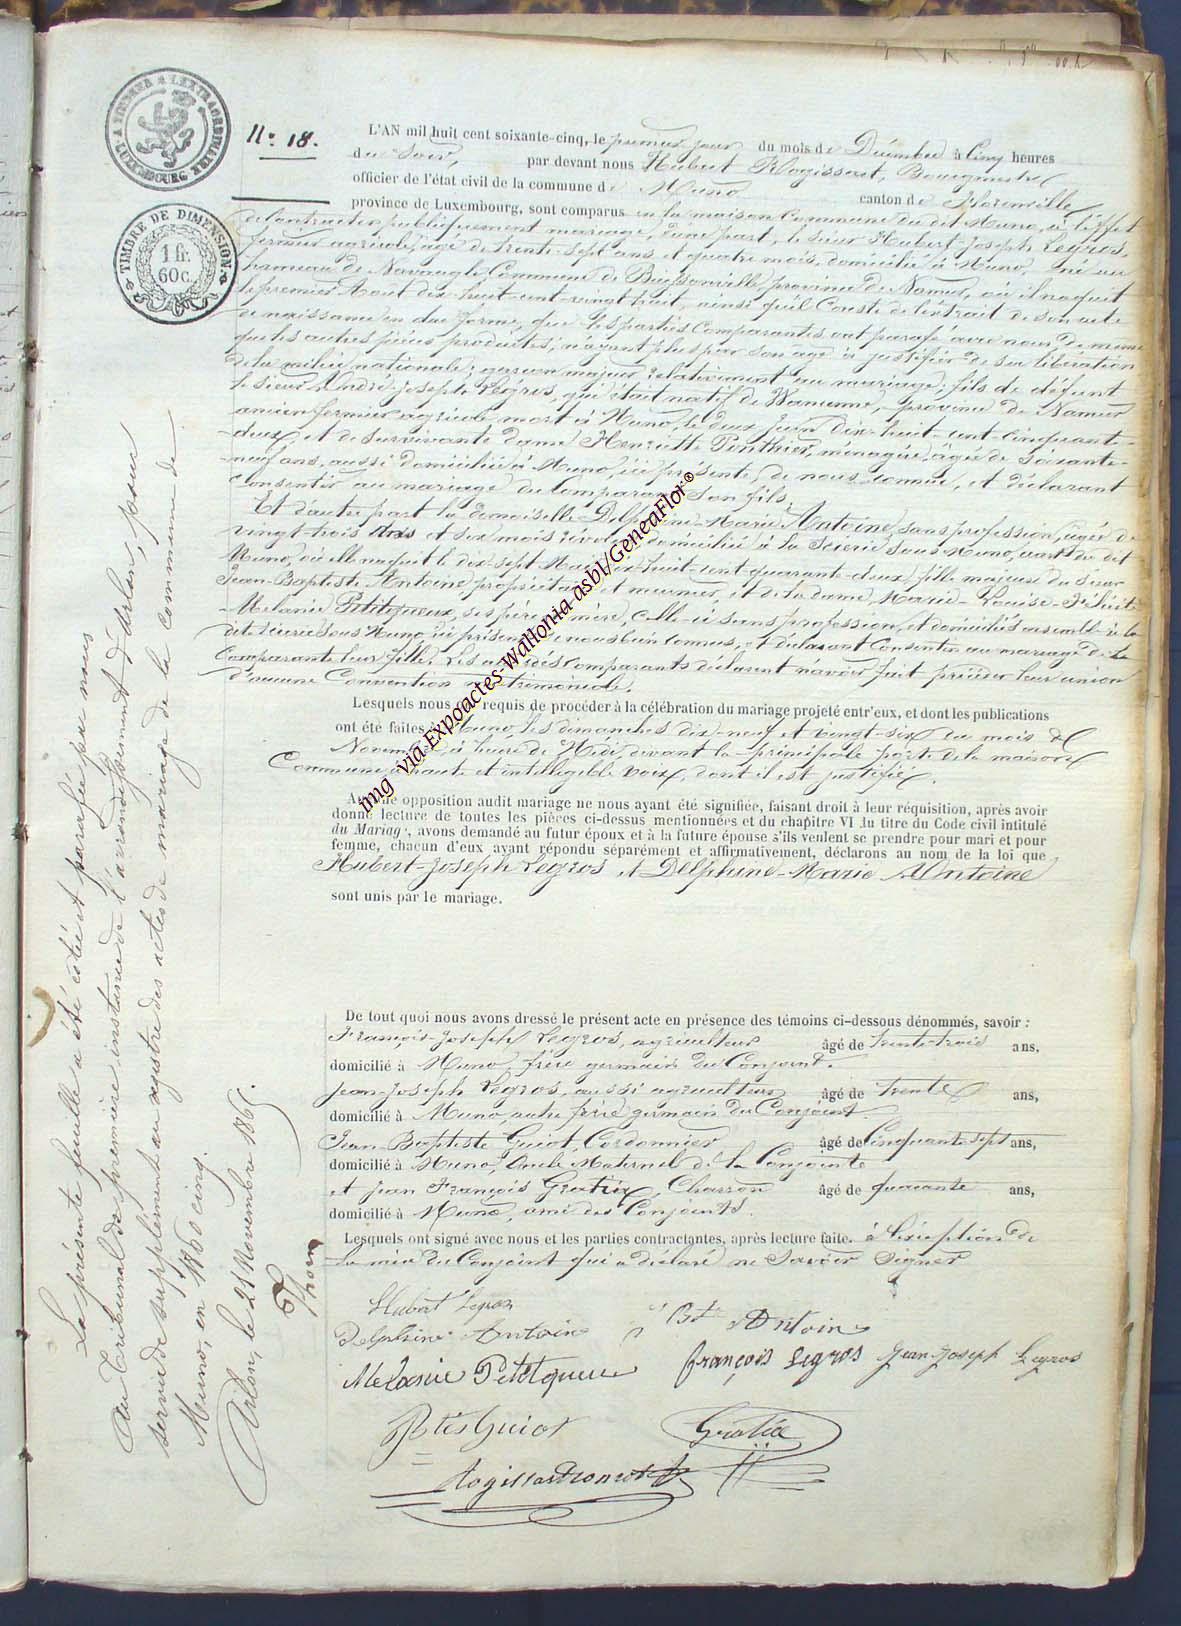 TIMBRE A L'EXTRAORDINAIRE
LUXEMBOURG
TIMBRE DE DIMENSION
1 fr.
60c.
N.º 18.
L'AN mil huit cent soixante-cinq, le premier jour du mois de Décembre à Cinq heures
du soir, par devant nous Hubert Rogissart, Bourgmestre
officier de l'état civil de la commune de Muno canton de Florenville
province de Luxembourg, sont comparus en la maison Commune du dit Muno, à l'effet
de Contracter publiquement mariage, d'une part, le sieur Hubert-Joseph Legros,
fermier agricole, âgé de trente-sept ans et quatre mois, domicilié à Muno, né au
hameau de Navaugle, Commune de Buissonville, province de Namur, où il naquit
le premier Août dix-huit-cent-vingt-huit, ainsi qu'il Conste de l'extrait de son acte
de naissance en due forme, que les parties Comparantes ont parafé avec nous de même
que les autres pièces produites; n'ayant plus par son âge à justifier de sa libération
de la milice nationale; garçon majeur relativement au mariage; fils de défunt
le sieur André-Joseph Legros, qui était natif de Wancenne, province de Namur
ancien fermier agricole, mort à Muno, le deux Juin dix-huit-cent-cinquante-
deux, et de survivante dame Henriette Ponthier, ménagère, âgée de soixante-
neuf ans, aussi domiciliée à Muno, ici présente, de nous connue, et déclarant
consentir au mariage du Comparant son fils.
Et d'autre part la demoiselle Delphine-Marie Antoine, sans profession, âgée de
vingt-trois ans et six mois révolus, domiciliée à la Scierie sous Muno, dit
Muno, où elle naquit le dix-sept Mai dix-huit-cent-quarante-deux, fille majeure du sieur
Jean-Baptiste Antoine propriétaire et meunier, et de la dame Marie-Louise-Félicité
-Mélanie Petitqueux, ses père et mère, celle-ci sans profession, et domiciliés ensemble à la
dite Scierie sous Muno, ici présents de nous bien connus, et déclarant Consentir au mariage de la
Comparante leur fille. Les Comparants déclarent n'avoir fait précéder leur union
d'aucune Convention matrimoniale.
Lesquels nous ont requis de procéder à la célébration du mariage projeté entr'eux, et dont les publications
ont été faites à Muno, les dimanches dix-neuf et vingt-six du mois de
Novembre à heure de Midi, devant la principale porte de la maison
Commune à haute et intelligible voix, dont il est justifié.
Aucune opposition audit mariage ne nous ayant été signifiée, faisant droit à leur réquisition, après avoir
donné lecture de toutes les pièces ci-dessus mentionnées et du chapitre VI du titre du Code civil intitulé
du Mariage, avons demandé au futur époux et à la future épouse s'ils veulent se prendre pour mari et pour
femme, chacun d'eux ayant répondu séparément et affirmativement, déclarons au nom de la loi que
Hubert-Joseph Legros et Delphine-Marie Antoine
sont unis par le mariage.
De tout quoi nous avons dressé le présent acte en présence des témoins ci-dessous dénommés, savoir :
François-Joseph Legros, agriculteur âgé de trente-trois ans,
domicilié à Muno, frère germain du Conjoint.
Jean-Joseph Legros, aussi agriculteur âgé de trente ans,
domicilié à Muno, autre frère germain du Conjoint
Jean-Baptiste Guiot, Cordonnier âgé de Cinquante-sept ans,
domicilié à Muno, Oncle Maternel de la Conjointe
et Jean François Gratia, Charron âgé de quarante ans,
domicilié à Muno, ami des Conjoints.
Lesquels ont signé avec nous et les parties contractantes, après lecture faite. à l'exception de
la mère du Conjoint qui a déclaré ne Savoir Signer
Hubert Legros
Delphine Antoine
J Bte Antoine
Mélanie Petitqueux
françois Legros Jean-Joseph Legros
JBte Guiot
Gratia
La présente feuille a été cotée et parafée par nous
au Tribunal de première instance de l'arrondissement d'Arlon, pour
servir de supplément au registre des actes de mariage de la commune de
Muno, en 1860 cinq.
Arlon, le 21 Novembre 1865.
img via Expoactes-Wallonia asbl/GeneaFlor®